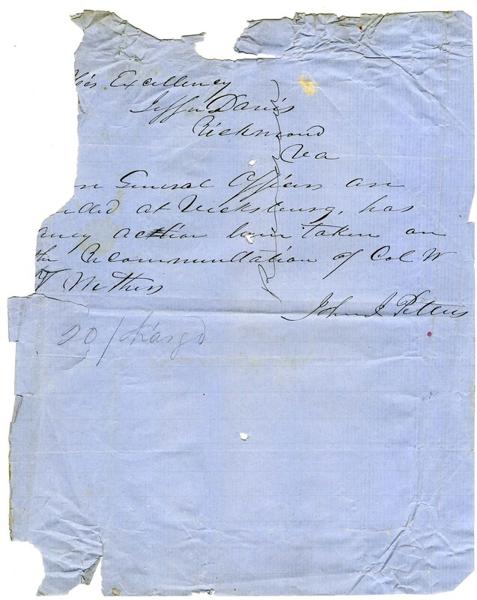 his Excellency
Jeffn Davis
Richmond
Va
en General Officers are
nded at Vicksburg, has
any action been taken on
the Recommendation of Col W
T Withers
John J Pettus
20/ charge